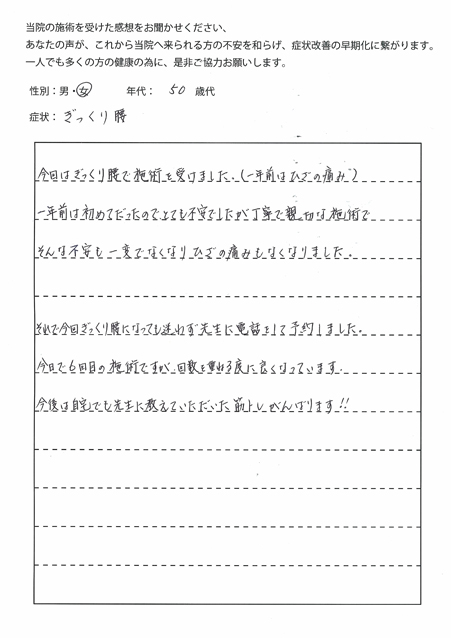 当院の施術を受けた感想をお聞かせください、
あなたの声が、これから当院へ来られる方の不安を和らげ、症状改善の早期化に繋がります。
一人でも多くの方の健康の為に、是非ご協力お願いします。
性別：男・女 年代： 50 歳代
症状： ぎっくり腰
今回はぎっくり腰で施術を受けました。(一年前はひざの痛み)
一年前は初めてだったのでとても不安でしたが丁寧で親切な施術で
そんな不安も一度でなくなりひざの痛みもなくなりました。
それで今回ぎっくり腰になっても迷わず先生に電話をして予約しました。
今日で6回目の施術ですが、回数を重ねる度に良くなっています。
今後は自宅でも先生に教えていただいた筋トレがんばります!!